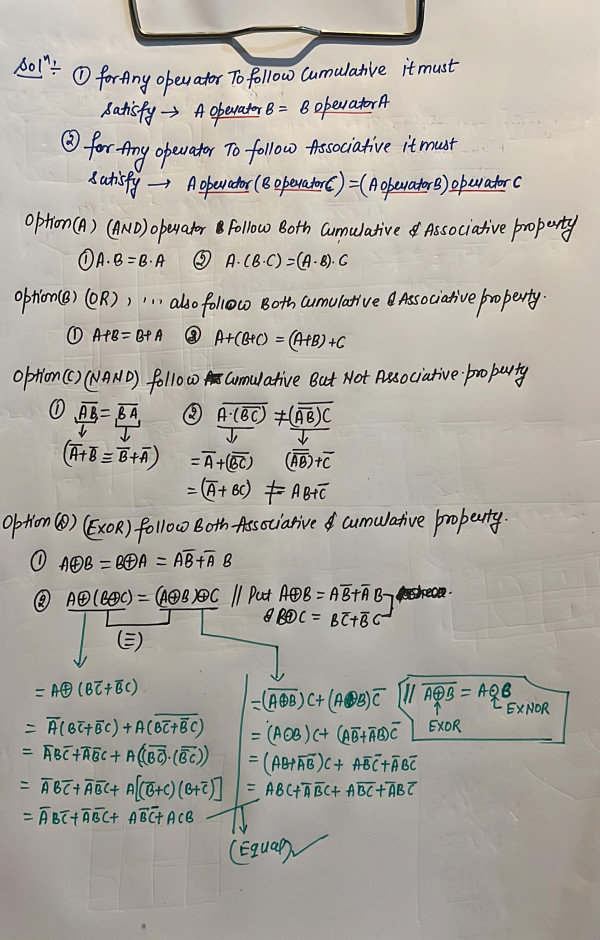 Solⁿ:- ① for Any operator To follow Cumulative it must
satisfy → A operator B = B operator A
② for Any operator To follow Associative it must
satisfy → A operator (B operator C) = (A operator B) operator C
Option(A) (AND) operator follow Both Cumulative & Associative property
① A·B = B·A ② A·(B·C) = (A·B)·C
Option(B) (OR) , ... also follow Both Cumulative & Associative property.
① A+B = B+A ② A+(B+C) = (A+B)+C
Option(C) (NAND) follow Cumulative But Not Associative property
① A̅B̅ = B̅A̅ ② A·(B̅C̅) ≠ (A̅B̅)C
(A̅+B̅ ≡ B̅+A̅) = A̅+(B̅C̅) (A̅B̅)+C̅
= (A̅+BC) ≠ AB+C̅
Option(D) (EXOR) follow Both Associative & Cumulative property.
① A⊕B = B⊕A = AB̅+A̅ B
② A⊕(B⊕C) = (A⊕B)⊕C // Put A⊕B = AB̅+A̅ B
& B⊕C = BC̅+B̅C
(≡)
= A⊕(BC̅+B̅C)
= A̅(BC̅+B̅C)+A(B̅C̅+̅B̅C̅)
= A̅BC̅+A̅B̅C+A((B̅C̅)·(B̅C̅))
= A̅BC̅+A̅B̅C+A[(B̅+C)(B+C̅)]
= A̅BC̅+A̅B̅C+AB̅C̅+ACB
= (A̅⊕̅B̅)C+(A⊕B)C̅
= (A⊙B)C+(AB̅+A̅B)C̅
= (AB+A̅B̅)C+AB̅C̅+A̅BC̅
= ABC+A̅B̅C+AB̅C̅+A̅BC̅
// A̅⊕̅B̅ = A⊙B
EXOR EXNOR
(Equal)